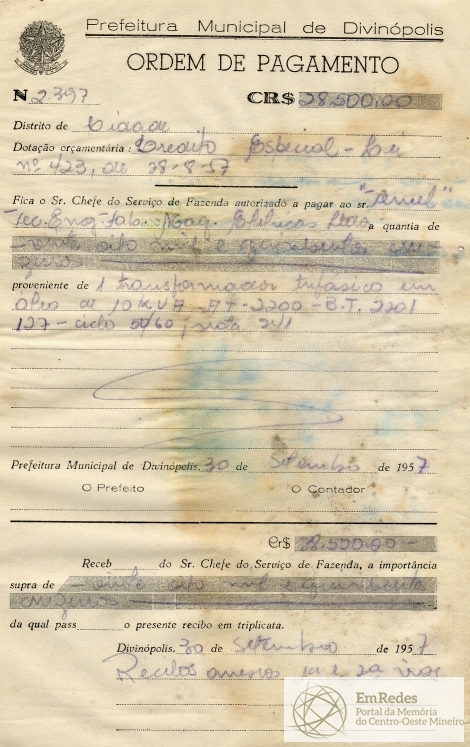 Prefeitura Municipal de Divinópolis
ORDEM DE PAGAMENTO
N 2397 CR$ 28.500,00
Distrito de Cidade
Dotação orçamentária: Credito Especial - Lei
nº 423, de 28-8-57
Fica o Sr. Chefe do Serviço de Fazenda autorizado a pagar ao sr.
Tec. Eng. Fab. Maq. Elétricas Ltda - a quantia de
- vinte oito mil e quinhentos
proveniente de 1 transformador trifásico em
óleo de 10 KVA - AT - 2200 - B.T. 220/
127 - ciclo 50/60, nota 241
Prefeitura Municipal de Divinópolis, 30 de Setembro de 1957
O Prefeito O Contador
Cr$ 28.500,00 -
Receb do Sr. Chefe do Serviço de Fazenda, a importância
supra de - vinte oito mil e quinhentos
cruzeiros
da qual pass o presente recibo em triplicata.
Divinópolis, 30 de setembro de 1957
Recibos anexos 1a e 2a vias
EmRedes
Portal da Memória
do Centro-Oeste Mineiro